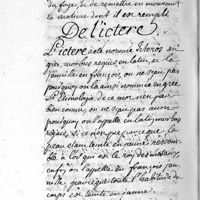 du foye, et de remettre en mouvement
la nature dont il est remply
De L'ictere.
L'ictere a été nommé icteros en
grec, morbus regius en latin, et la
jaunisse en françois, on ne sçay pas
pourquoy on la ainsi nommée en grec
l'Etimologie de ce mot
on ne sçay pas aussy
pourquoy on l'appelle en latin morbus
regius, si ce n'est que parce que la
peau étant teinte en jaune ressem-
ble a l'or qui est le roy des métaux
enfin on l'appelle en françois jau-
nisse parce que toute l'habitude du
corps est teinte en jaune.